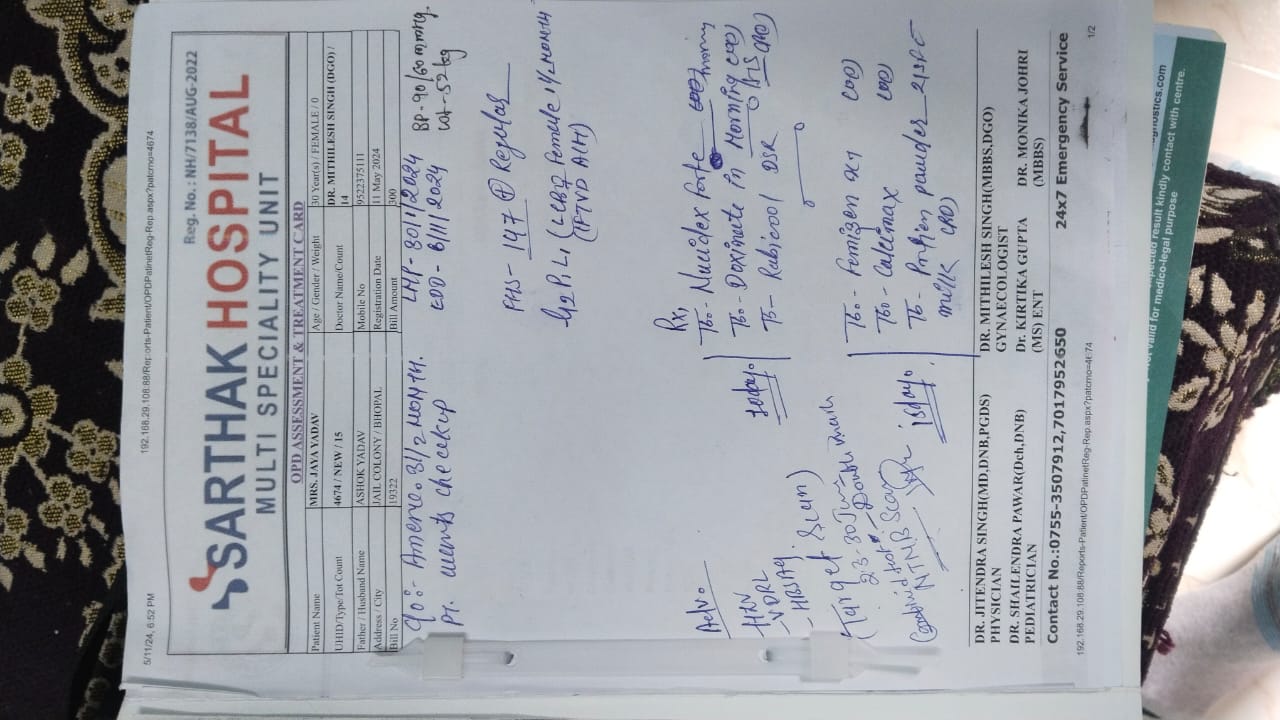 5/11/24, 6:52 PM
192.168.29.108:88/Reports-Patient/OPDPatinetReg-Rep.aspx?patcrno=4674
Reg. No.: NH/7138/AUG-2022
SARTHAK HOSPITAL
MULTI SPECIALITY UNIT
OPD ASSESSMENT & TREATMENT CARD
Patient Name MRS. JAYA YADAV Age / Gender / Weight 30 Year(s) / FEMALE / 0
UHID/Type/Tot Count 4674 / NEW / 15 Doctor Name/Count DR. MITHILESH SINGH (DGO) / 14
Father / Husband Name ASHOK YADAV Mobile No 9522375111
Address / City JAIL COLONY / BHOPAL Registration Date 11 May 2024
Bill No 19322 Bill Amount 300
3 1/2 MONTH. LMP - 30/1/2024 BP - 90/60 mmhg.
Pt. wents checkup EDD - 6/11/2024 wt - 52 kg
Regular
G2 P1 L1 (LCB Female 1 1/2 MONTH
(FTVD
Rx,
Adv.
HIV
- VDRL
- HBSAg.
(Target Scan)
23-30 June
Double mark
NTNB Scan
Tb. - Nucidex forte
Tb. - Doxinate in Morning (OD)
DSR
10 days.
Tb. - (OD)
Tb. - Calcimax (OD)
Tb. - Protien pauder
milk
15 days.
DR. JITENDRA SINGH(MD,DNB,PGDS)
PHYSICIAN
DR. MITHILESH SINGH(MBBS,DGO)
GYNAECOLOGIST
DR. SHAILENDRA PAWAR(Dch,DNB)
PEDIATRICIAN
Dr. KIRTIKA GUPTA
(MS) ENT
DR. MONIKA JOHRI
(MBBS)
Contact No.:0755-3507912,7017952650 24x7 Emergency Service
192.168.29.108:88/Reports-Patient/OPDPatinetReg-Rep.aspx?patcrno=4674
1/2
expected result kindly contact with centre.
valid for medico-legal purpose
gnostics.com